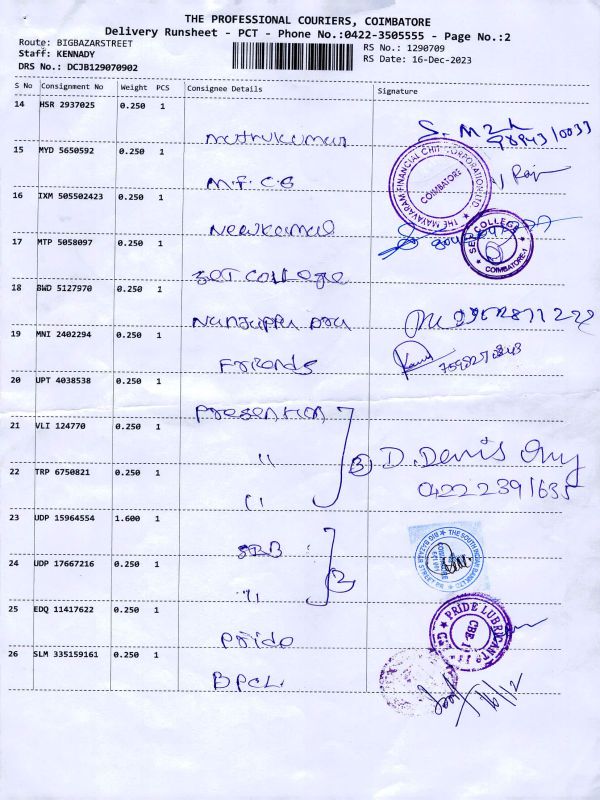 THE PROFESSIONAL COURIERS, COIMBATORE
Delivery Runsheet - PCT - Phone No.:0422-3505555 - Page No.:2
Route: BIGBAZARSTREET RS No.: 1290709
Staff: KENNADY RS Date: 16-Dec-2023
DRS No.: DCJB129070902
S No Consignment No Weight PCS Consignee Details Signature
14 HSR 2937025 0.250 1
muthukumar
15 MYD 5650592 0.250 1
M.F.C.G
THE MAYAVARAM FINANCIAL CHIT CORPORATION LTD
COIMBATORE
16 IXM 505502423 0.250 1
Newkamal
17 MTP 5058097 0.250 1
COLLEGE
COIMBATORE-1
College
18 BWD 5127970 0.250 1
19 MNI 2402294 0.250 1
Friends
20 UPT 4038538 0.250 1
Presention
21 VLI 124770 0.250 1
" 3 D. Denis
22 TRP 6750821 0.250 1
04222391635
"
23 UDP 15964554 1.600 1
THE SOUTH INDIAN BANK LTD
24 UDP 17667216 0.250 1
2
"
25 EDQ 11417622 0.250 1
PRIDE LUBRICANTS
CBE
Pride
26 SLM 335159161 0.250 1
BPCL
16/12